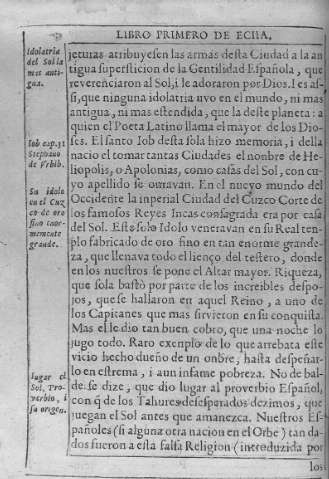 LIBRO PRIMERO DE ECIIA,
Idolatria
del Sol la
mas anti-
gua.
Iob cap.31
Stephano
de Vrbib.
Su idolo
en el Cuz
co de oro
fino enor-
memente
grande.
Iugar el
Sol, Pro-
verbio, i
su origen.
jeturas atribuyesen las armas desta Ciudad a la an
tigua supersticion de la Gentilidad Española, que
reverenciaron al Sol, i le adoraron por Dios. I es as-
si, que ninguna idolatria uvo en el mundo, ni mas
antigua, ni mas estendida, que la deste planeta: a
quien el Poeta Latino llama el mayor de los Dio-
ses. El santo Iob desta sola hizo memoria, i della
nacio el tomar tantas Ciudades el nonbre de He-
liopolis, o Apolonias, como casas del Sol, con cu-
yo apellido se onravan. En el nuevo mundo del
Occidente la inperial Ciudad del Cuzco Corte de
los famosos Reyes Incas consagrada era por casa
del Sol. Este solo Idolo veneravan en su Real tem-
plo fabricado de oro fino en tan enorme grande-
za, que llenava todo el lienço del testero, donde
en los nuestros se pone el Altar mayor. Riqueza,
que sola bastò por parte de los increibles despo-
jos, que se hallaron en aquel Reino, a uno de
los Capitanes que mas sirvieron en su conquista.
Mas el le dio tan buen cobro, que una noche lo
jugo todo. Raro exenplo de lo que arrebata este
vicio hecho dueño de un onbre, hasta despeñar-
lo en estrema, i aun infame pobreza. No de bal-
de se dize, que dio lugar al proverbio Español,
con q̃ de los Tahures desesperados dezimos, que
juegan el Sol antes que amanezca. Nuestros Es-
pañoles (si alguna otra nacion en el Orbe) tan da-
dos fueron a esta falsa Religion (introduzida por
los